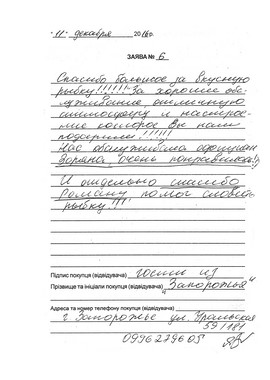 "11" декабря 2016 р.
ЗАЯВА № 6
Спасибо большое за вкусную
рыбку!!!!!! За хорошее обс-
луживание, отличную
атмосферу и настрое-
ние которое Вы нам
подарили!!!!!!
Нас обслуживала официант
Зоряна, очень понравилась!!
И отдельно спасибо
Роману помог словить
рыбку!!!
Підпис покупця (відвідувача) гости из
Прізвище та ініціали покупця (відвідувача) "Запорожья"
Адреса та номер телефону покупця (відвідувача)
г Запорожье ул. Уральская
0996279605